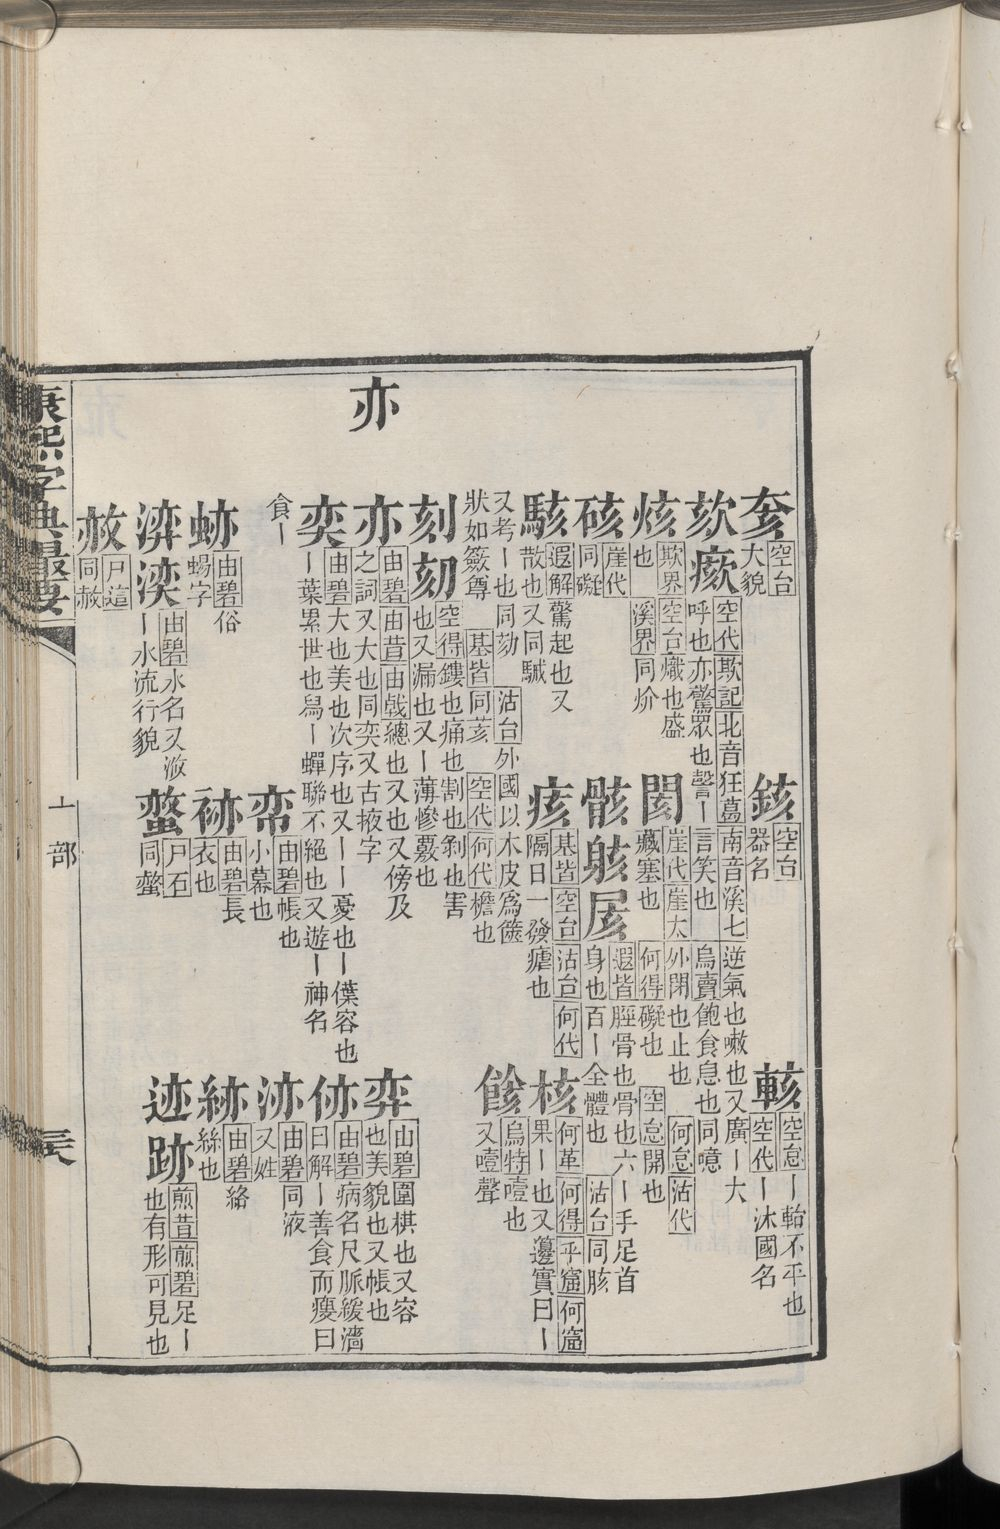 亦
奒 空台大貌
空台器名
輆 空怠丨軩不平也空代丨沐國名
欬 空代欺記北音狂葛南音溪七逆氣也嗽也又廣丨大
呼也亦驚眾也謦丨言笑也烏賣飽食息也同噫
烗 欺界空台熾也盛也溪界同炌
閡 崖代崖大外閉也止也何怠沽代
藏塞也何得礙也空怠開也
硋 崖代同礙
骸 遐皆脛骨也骨也六丨手足首
身也百丨全體也沽台同胲
駭 遐解驚起也又散也又同駴
痎 基皆空台沽台何代隔日一發瘧也
核 何革何得乎窟何窟果丨也又籩實曰丨
烏特噎也又噎聲
又考丨也同劾沽台外國以木皮爲篋
狀如簽尊基皆同荄空代何代檐也
刻 空得鏤也痛也割也剝也害
也又漏也又丨薄慘覈也
亦 由碧由昔由戟總也又也又傍及
之詞又大也同奕又古掖字
弈 由碧圍棋也又容也美貌也又帳也
奕 由碧大也美也次序也又丨丨憂也丨僷容也
丨葉累世也舄丨蟬聯不絕也又遊丨神名
食丨
由碧病名尺脈緩濇曰解丨善食而瘦曰
帟 由碧帳也小幕也
液 由碧同液又姓
由碧俗蜴字
由碧長衣也
由碧絡絲也
由碧水名又漵
丨水流行貌
螫 尸石同螫
迹跡 煎昔煎碧足丨
也有形可見也
赦 尸這同赦
康熙字典最要
亠部
辰